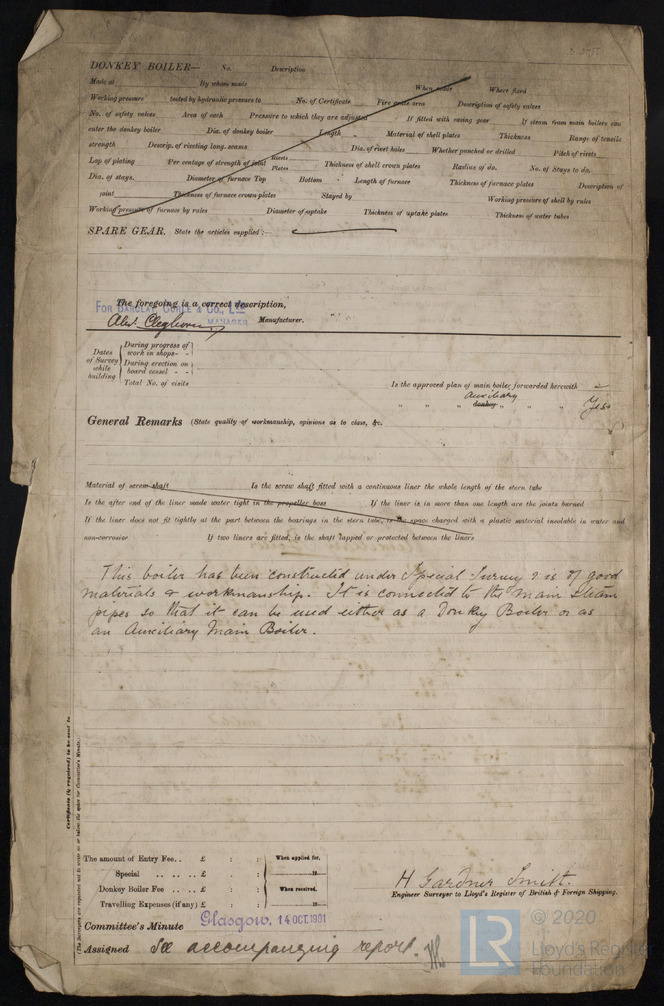 DONKEY BOILER— No. Description
Made at By whom made When made Where fixed
Working pressure tested by hydraulic pressure to No. of Certificate Fire grate area Description of safety valves
No. of safety valves Area of each Pressure to which they are adjusted If fitted with easing gear If steam from main boilers can
enter the donkey boiler Dia. of donkey boiler Length Material of shell plates Thickness Range of tensile
strength Descrip. of riveting long. seams Dia. of rivet holes Whether punched or drilled Pitch of rivets
Lap of plating Per centage of strength of joint Rivets Plates Thickness of shell crown plates Radius of do. No. of Stays to do.
Dia. of stays. Diameter of furnace Top Bottom Length of furnace Thickness of furnace plates Description of
joint Thickness of furnace crown plates Stayed by Working pressure of shell by rules
Working pressure of furnace by rules Diameter of uptake Thickness of uptake plates Thickness of water tubes
SPARE GEAR. State the articles supplied:—
The foregoing is a correct description,
FOR BARCLAY CURLE & CO., LTD
Alex. Cleghorn MANAGER Manufacturer.
Dates of Survey while building
During progress of work in shops - -
During erection on board vessel - -
Total No. of visits
Is the approved plan of main boiler forwarded herewith
Auxiliary
" " " donkey " " " Yes
General Remarks (State quality of workmanship, opinions as to class, &c.
Material of screw shaft Is the screw shaft fitted with a continuous liner the whole length of the stern tube
Is the after end of the liner made water tight in the propeller boss If the liner is in more than one length are the joints burned
If the liner does not fit tightly at the part between the bearings in the stern tube, is the space charged with a plastic material insoluble in water and
non-corrosive If two liners are fitted, is the shaft lapped or protected between the liners
This boiler has been constructed under Special Survey & is of good
materials & workmanship. It is connected to the main steam
pipes so that it can be used either as a Donkey Boiler or as
an Auxiliary Main Boiler.
Certificate (if required) to be sent to
(The Surveyors are requested not to write on or below the space for Committee's Minute.)
The amount of Entry Fee.. £ : : When applied for,
Special .. .. .. £ : : 19
Donkey Boiler Fee .. .. .. £ : : When received,
Travelling Expenses (if any) £ : : 19
H Gardner Smith.
Engineer Surveyor to Lloyd's Register of British & Foreign Shipping.
Committee's Minute Glasgow. 14 OCT. 1901
Assigned See accompanying report.
LR © 2020
Lloyd's Register
Foundation